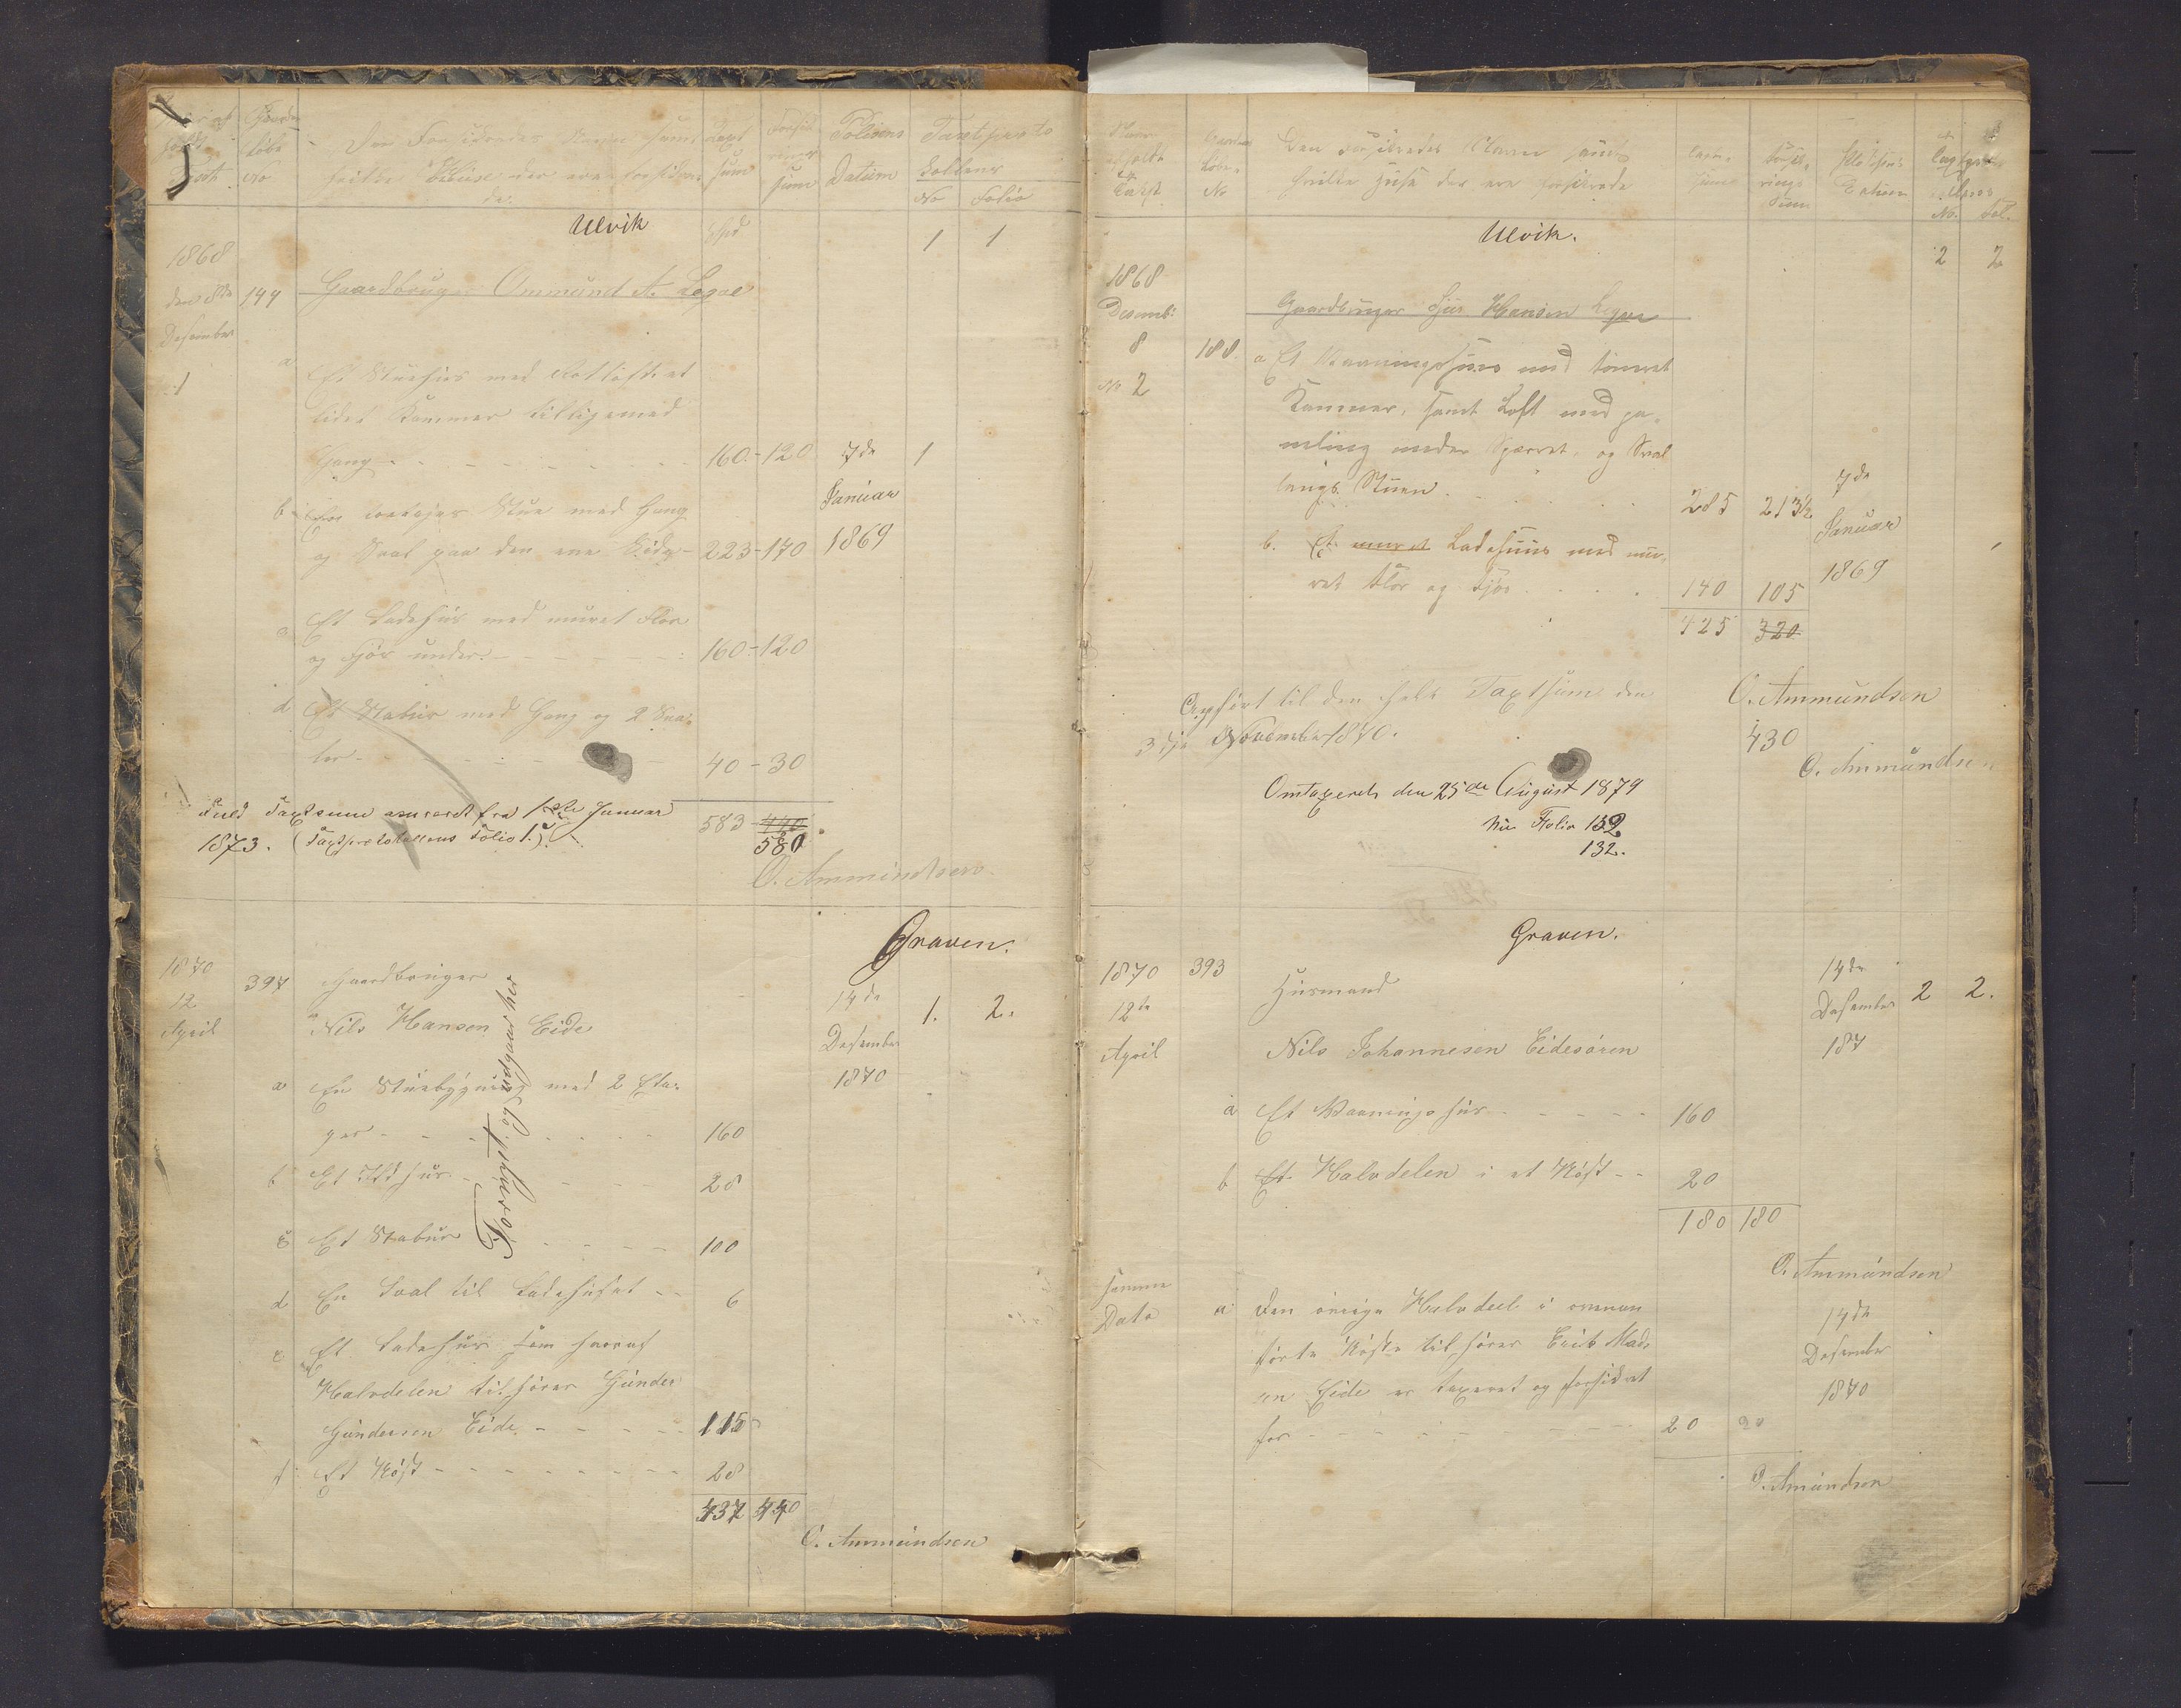 Gaards
Løbe
No
Den Forsikredes Navn samt
hvilke Huse der ere forsikre-
de.
Taxt
sum
Forsik
rings
sum
Polisens
Datum
Taxtproto
kollens
No Folio
Ulvik
Spd
1 1
1868
den 8de
Desember
144
Gaardbruger Ommund A. Legae
a Et Stuehus med
lidet Kammer tilligemed
Gang 160 - 120 7de 1
Januar
b Stue med Gang
og Sval paa den ene Side 223 - 170 1869
Et Ladehus med muret Flor
og Fjøs under 160 - 120
d Et Stabur med Gang og 2 Sva-
ler 40 - 30
Fuld Taxtsum assureret fra 1ste Januar
1873. (Taxtprotokollens Folio 1.) 583 440
580
O. Ammundsen
Graven.
1870
12
April
397 Gaardbruger
Nils Hansen Eide
14de
Desember
1870
1. 2.
a En Stuebygning med 2 Eta-
ger 160
b Et Ildhus 28
c Et Stabur 100
d En Sval til Ladehuset 6
e Et Ladehus som hvoraf
Halvdelen tilhører Gunder
Gundersen Eide 115
f Et Røst 28
437 440
O. Ammundsen
Fornyet og udgaar her
No
Den forsikredes Navn samt
hvilke Huse der ere forsikrede
Forsik-
rings
Sum
Datum
No. Fol.
Ulvik.
2 2
1868
Desemb:
8
No 2
Gaardbruger Sjur Hansen Legae
188 a Et Vaaningshuus med tømret
Kammer, samt Loft med pa-
neling under Sperret, og Sval
langs Stuen 285 213½
7de
Januar
1869
b. Et muret Ladehuus med mu-
ret Flor og Fjøs 140 105
425 320
O. Ammundsen
Opført til den hele Taxtsum den
3die November 1870.
430
O. Ammundsen
Omtaxeret den 25de August 1879
Nu Folio 132
132.
Graven.
1870
12te
April
393
Husmand
Nils Johannesen Eidesøren
14de
Desember
187
2 2.
a Et Vaaningshus 160
b Et Halvdelen i et Røst 20
180 180
O. Ammundsen
samme
Dato
a Den øvrige Halvdeel i ommen
førte Røste tilhører Erik Mad-
sen Eide er taxeret og forsikret
for 20 20
14de
Desember
1870
O. Amundsen